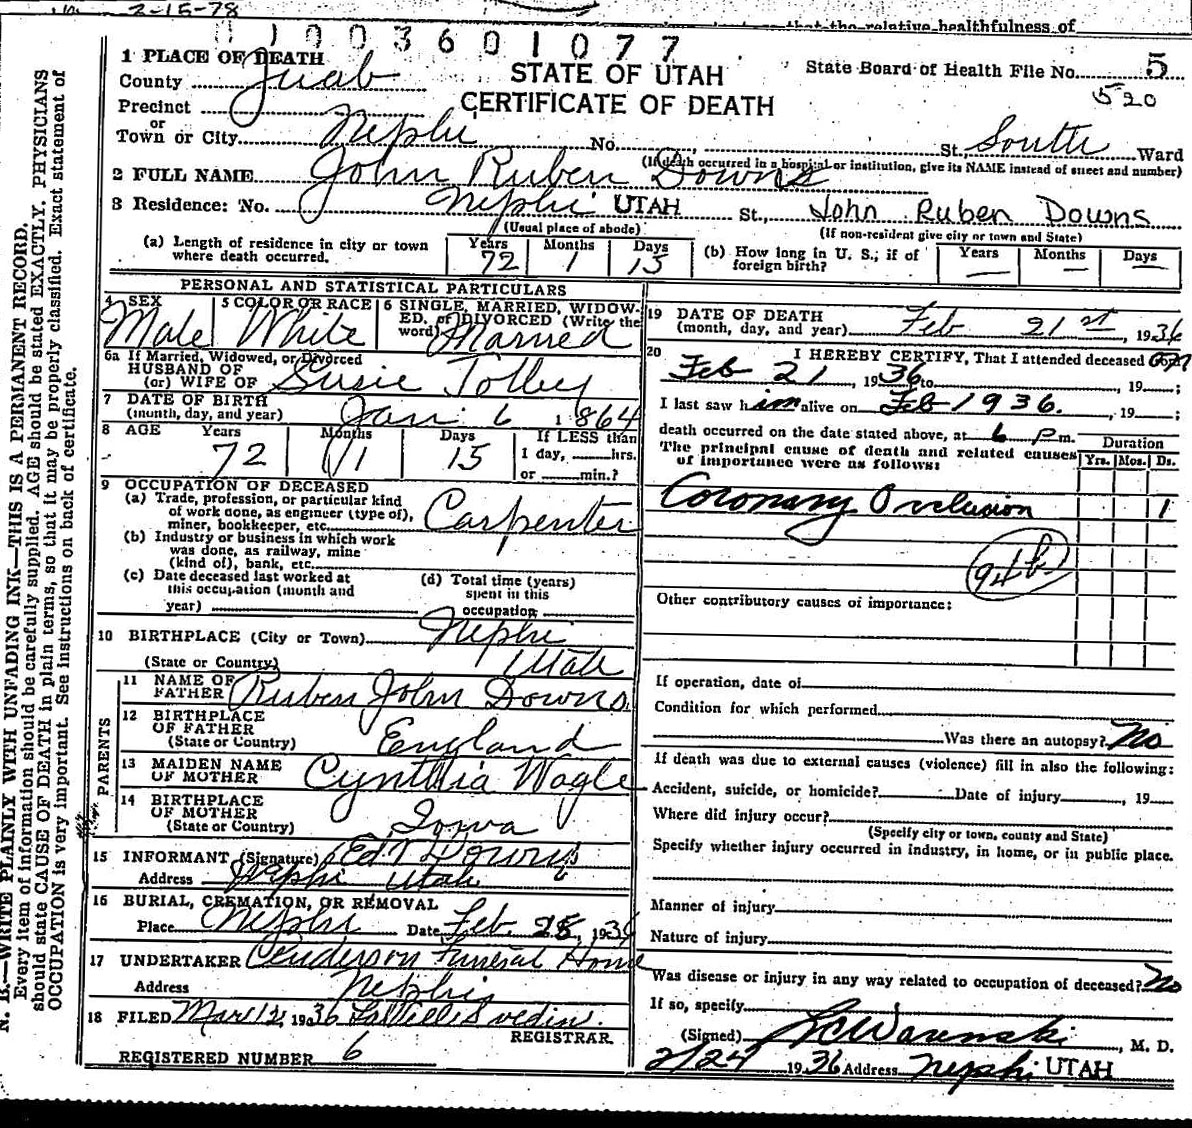 2-15-78
that the relative healthfulness of
01003601077
1 PLACE OF DEATH
County Juab
STATE OF UTAH
CERTIFICATE OF DEATH
State Board of Health File No. 5
520
Precinct
or
Town or City Nephi No. St. South Ward
(If death occurred in a hospital or institution, give its NAME instead of street and number)
2 FULL NAME John Ruben Downs
3 Residence: No. Nephi UTAH St., John Ruben Downs
(Usual place of abode) (If non-resident give city or town and State)
(a) Length of residence in city or town where death occurred. Years 72 Months 1 Days 15
(b) How long in U. S.; if of foreign birth? Years — Months — Days —
PERSONAL AND STATISTICAL PARTICULARS
4 SEX Male
5 COLOR OR RACE White
6 SINGLE, MARRIED, WIDOWED, or DIVORCED (Write the word) Married
6a If Married, Widowed, or Divorced
HUSBAND OF
(or) WIFE OF Susie Tolley
7 DATE OF BIRTH
(month, day, and year) Jan. 6 1864
8 AGE Years 72 Months 1 Days 15 If LESS than 1 day, hrs. or min.?
9 OCCUPATION OF DECEASED
(a) Trade, profession, or particular kind of work done, as engineer (type of), miner, bookkeeper, etc. Carpenter
(b) Industry or business in which work was done, as railway, mine (kind of), bank, etc.
(c) Date deceased last worked at this occupation (month and year)
(d) Total time (years) spent in this occupation
10 BIRTHPLACE (City or Town) Nephi
(State or Country) Utah
PARENTS
11 NAME OF FATHER Ruben John Downs
12 BIRTHPLACE OF FATHER
(State or Country) England
13 MAIDEN NAME OF MOTHER Cynthia Wogle
14 BIRTHPLACE OF MOTHER
(State or Country) Iowa
15 INFORMANT (Signature)
Address Nephi Utah
16 BURIAL, CREMATION, OR REMOVAL
Place Nephi Date Feb. 25, 1936
17 UNDERTAKER Anderson Funeral Home
Address Nephi
18 FILED Mar 12, 1936
REGISTRAR
REGISTERED NUMBER 6
19 DATE OF DEATH
(month, day, and year) Feb 21st, 1936
20 I HEREBY CERTIFY, That I attended deceased
Feb 21, 1936 to , 19 ;
I last saw him alive on Feb 1936. , 19 ;
death occurred on the date stated above, at 6 p m.
The principal cause of death and related causes of importance were as follows:
Duration
Yrs. Mos. Ds.
Coronary Occlusion 1
94b
Other contributory causes of importance:
If operation, date of
Condition for which performed
Was there an autopsy? No
If death was due to external causes (violence) fill in also the following:
Accident, suicide, or homicide? Date of injury , 19
Where did injury occur?
(Specify city or town, county and State)
Specify whether injury occurred in industry, in home, or in public place.
Manner of injury
Nature of injury
Was disease or injury in any way related to occupation of deceased? No
If so, specify
(Signed) , M. D.
2/24 1936 Address Nephi UTAH
N. B.—WRITE PLAINLY WITH UNFADING INK—THIS IS A PERMANENT RECORD.
Every item of information should be carefully supplied. AGE should be stated EXACTLY. PHYSICIANS
should state CAUSE OF DEATH in plain terms, so that it may be properly classified. Exact statement of
OCCUPATION is very important. See instructions on back of certificate.